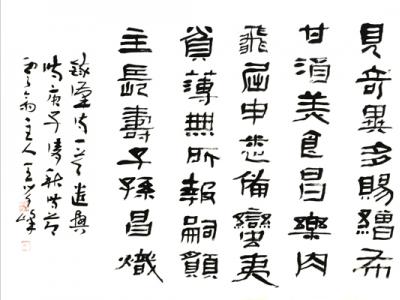 見奇異多賜繒布
甘酒美食昌樂肉
飛屈申悉備蠻夷
貧薄無所報嗣願
主長壽子孫昌熾
錄漢詩一首遣興
時庚子清秋時節
主人